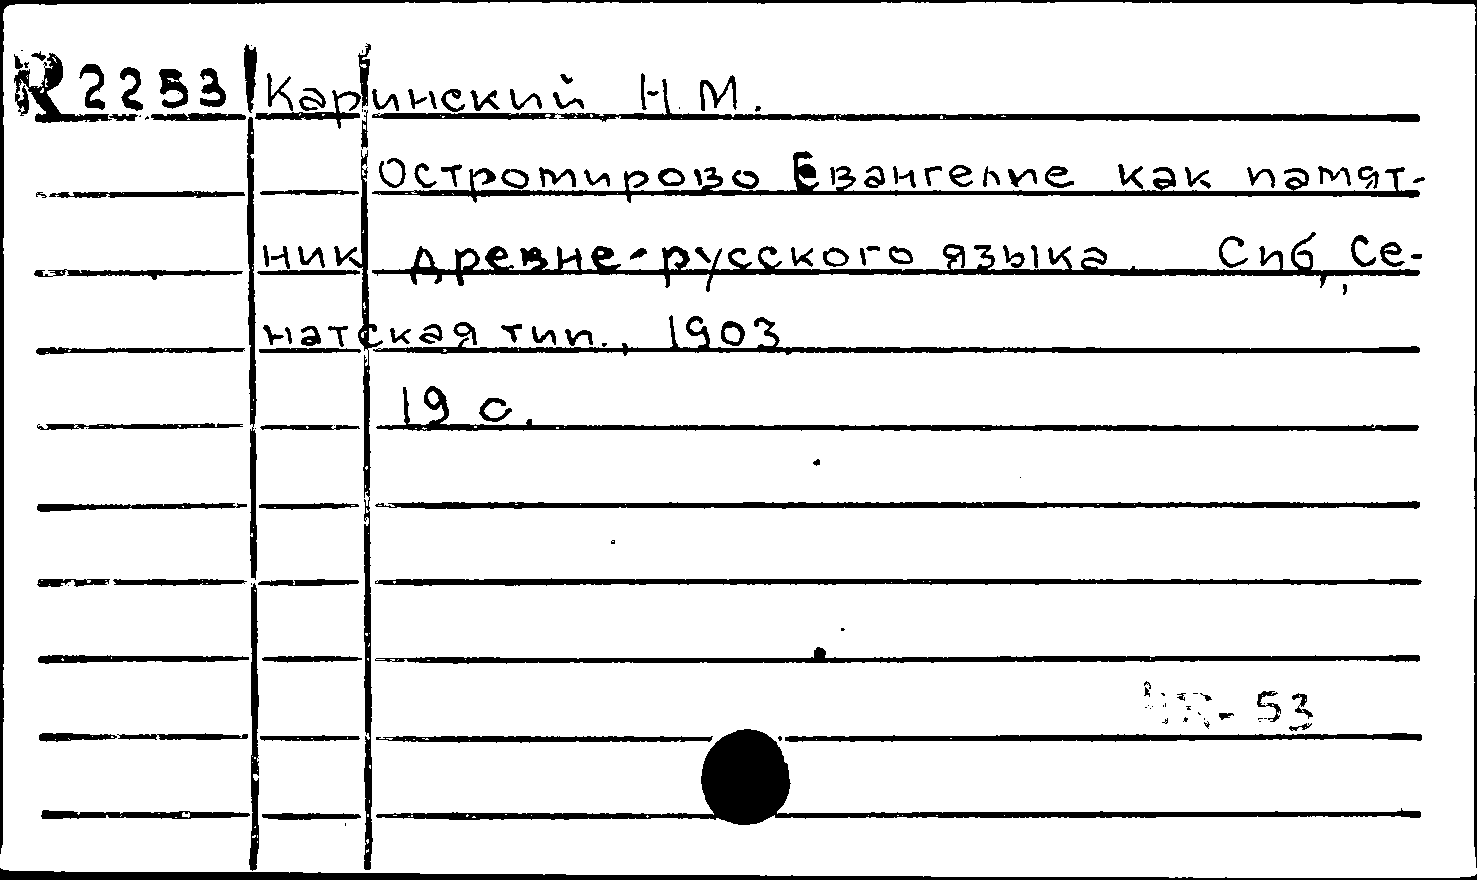 R 2253 Каринский Н. М.
Остромирово Евангелие как памят-
ник древне-русского языка. Спб., Се-
натская тип., 1903
19 с.
53